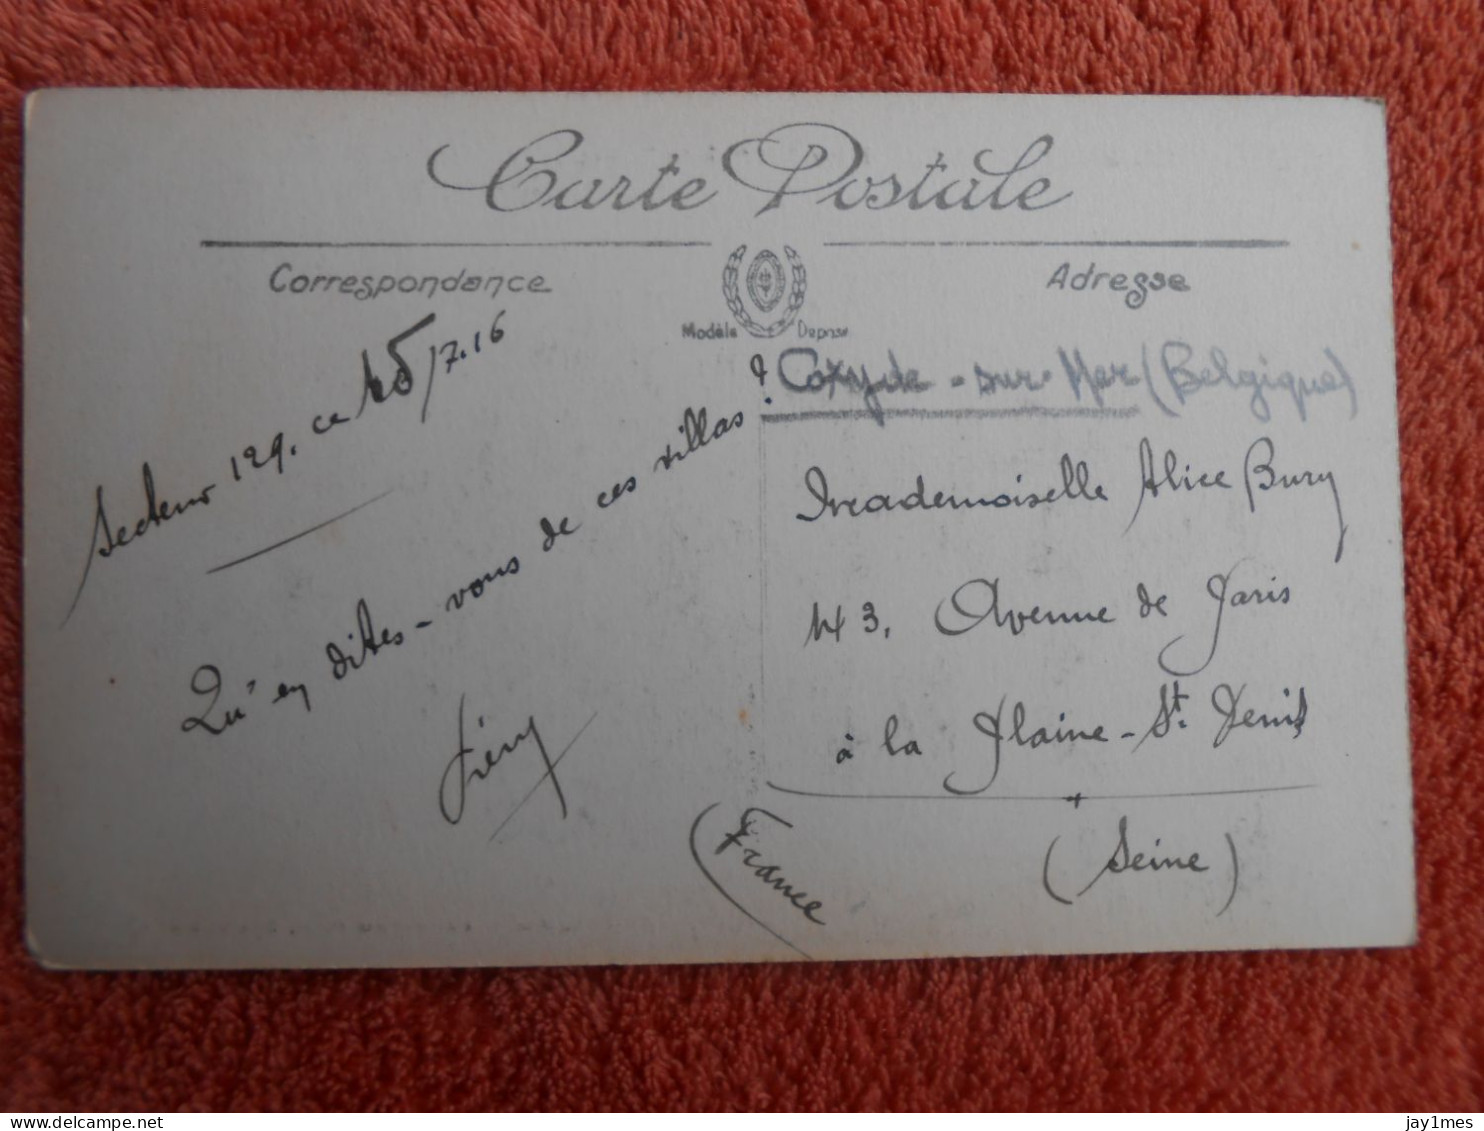 Carte Postale
Correspondance
Adresse
Modèle Déposé
Secteur 129. ce 15/7.16
Qu'en dites-vous de ces villas?
Coxyde-sur-Mer (Belgique)
Mademoiselle Alice Bury
43, Avenue de Paris
à la Plaine-St. Denis
(Seine)
(France
delcampe.net
jay1mes